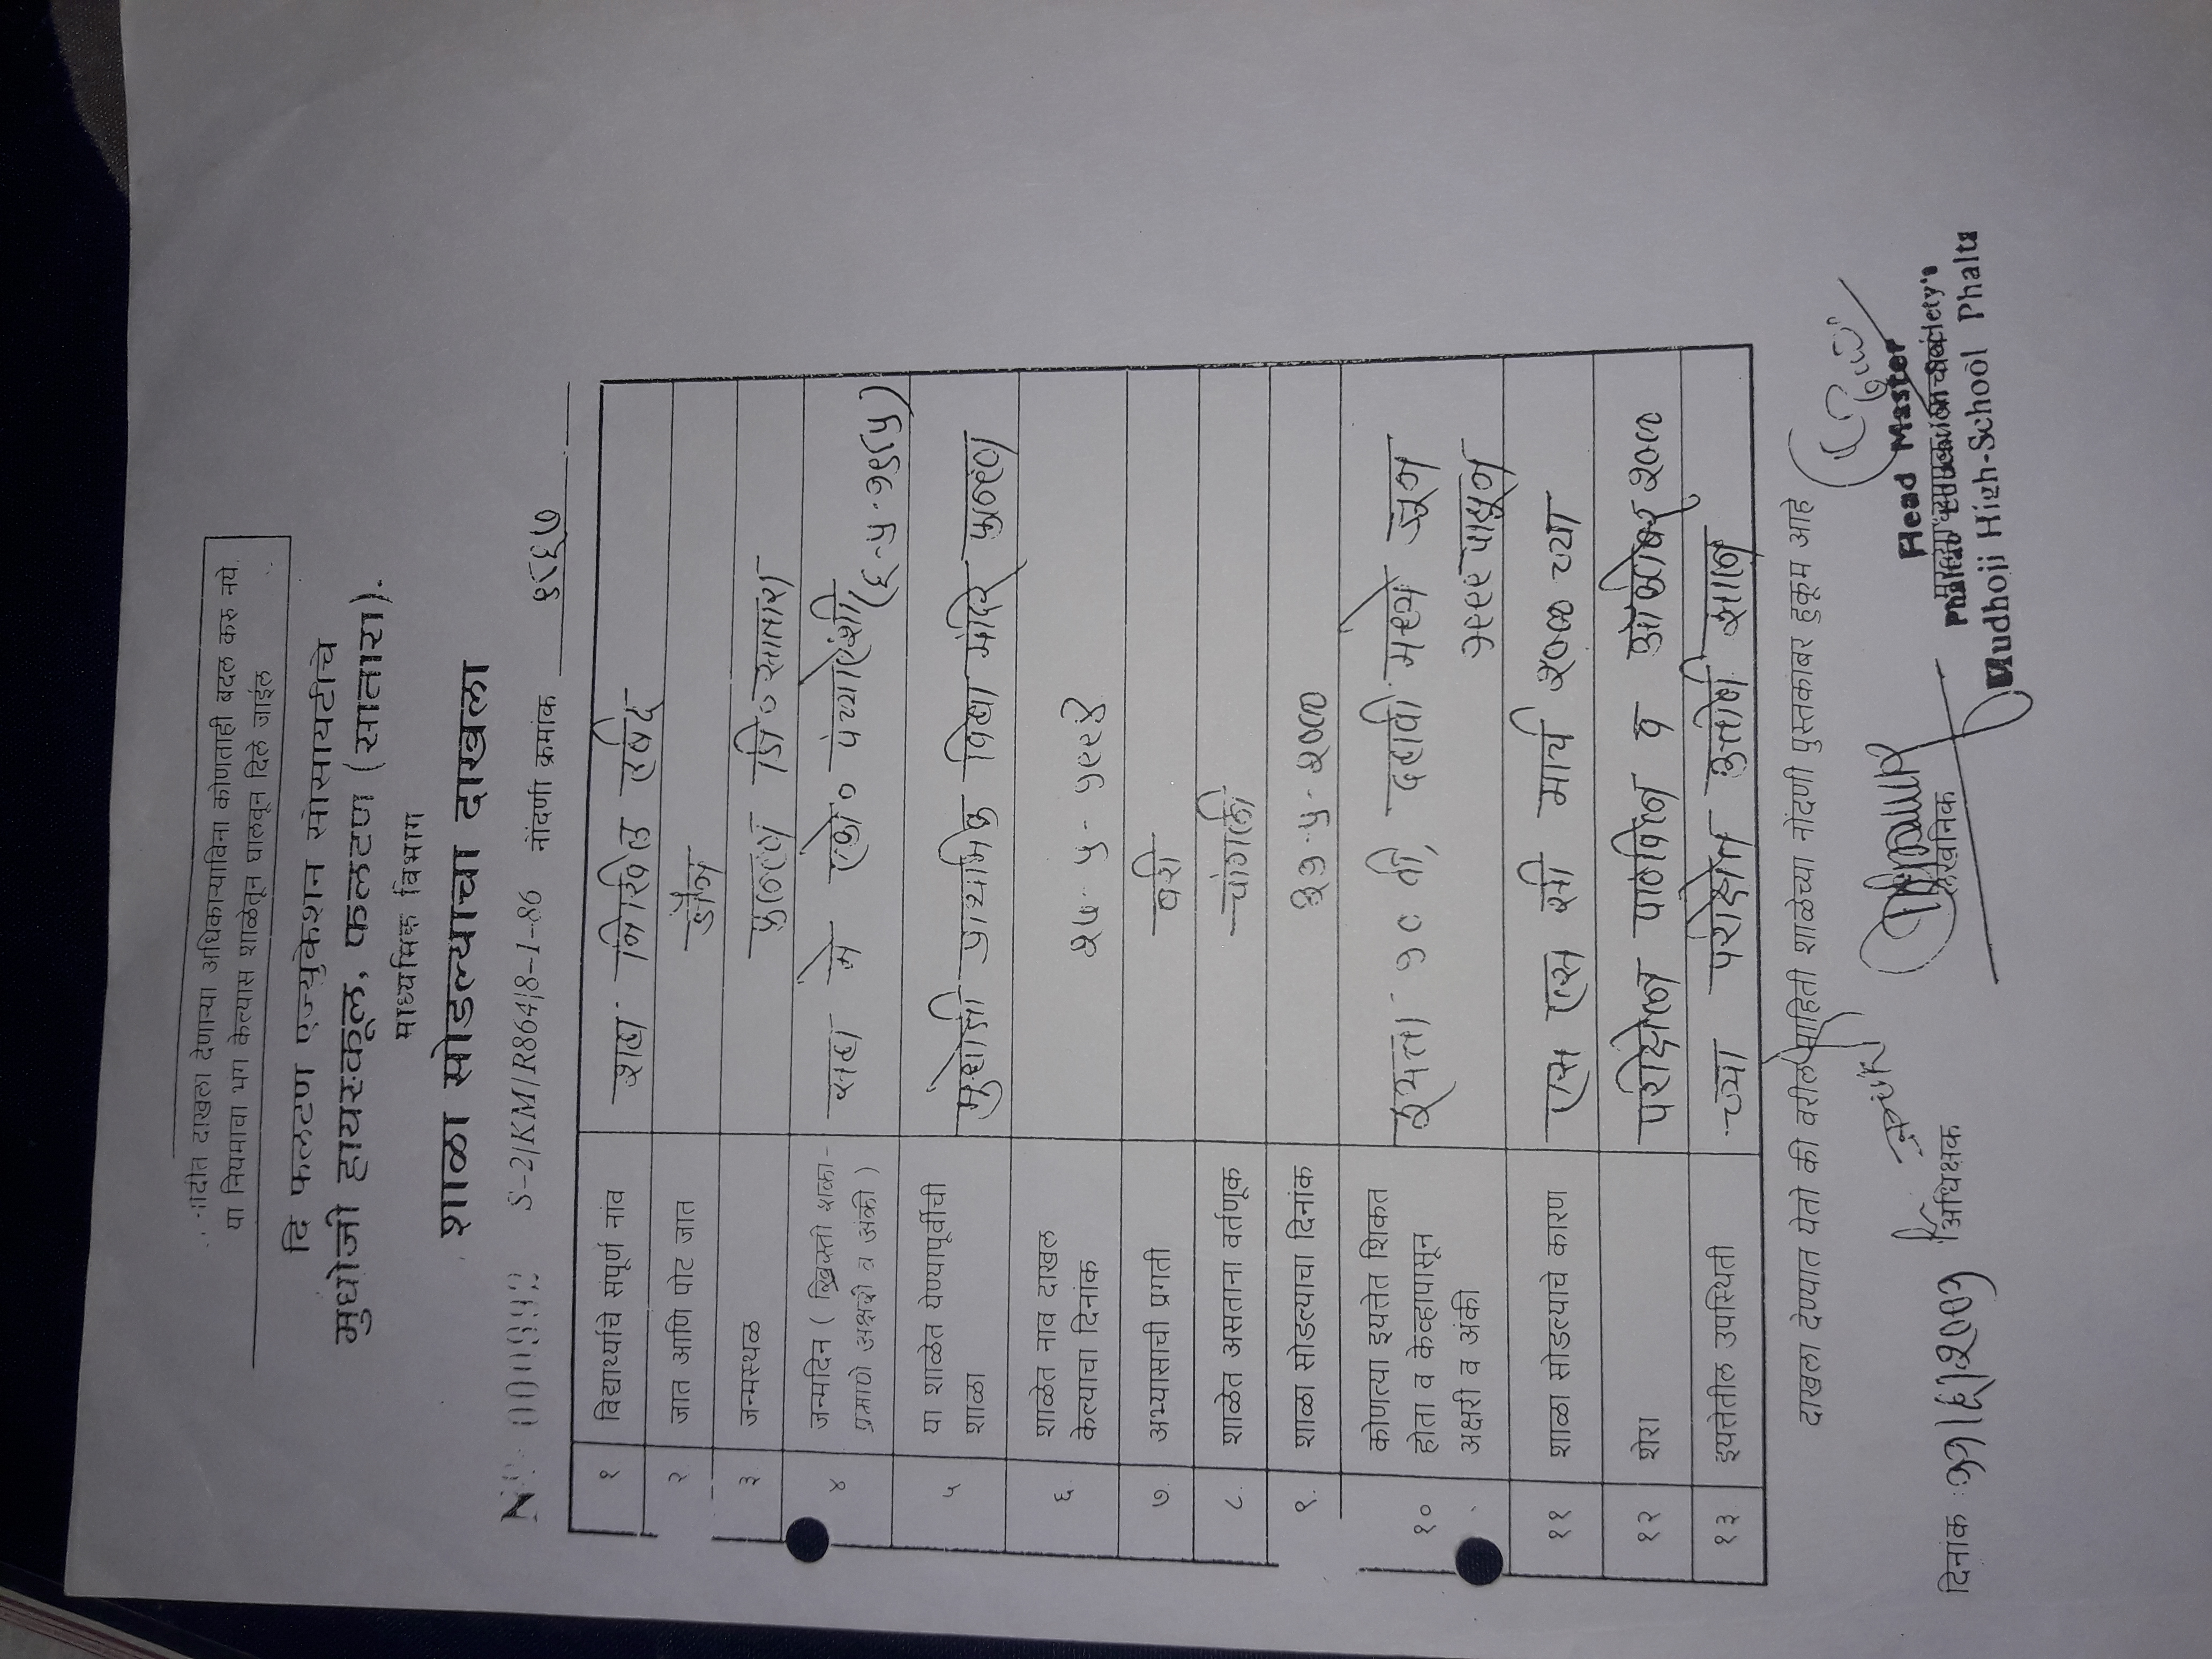 दाखला देणाऱ्या अधिकाऱ्याविना कोणताही बदल करु नये.
या नियमाचा भंग केल्यास शाळेतून घालवून दिले जाईल
दि फलटण एज्युकेशन सोसायटीचे
मुधोजी हायस्कूल, फलटण (सातारा).
माध्यमिक विभाग
शाळा सोडल्याचा दाखला
S-2/KM/R864/8-1-80 नोंदणी क्रमांक
१ विद्यार्थ्याचे संपूर्ण नांव शहा निखिल रविंद्र
२ जात आणि पोट जात जैन
३ जन्मस्थळ फलटण जि० सातारा
४ जन्मदिन ( ख्रिस्ती शका- सहा मे एको० पंच्याऐंशी
प्रमाणे अक्षरी व अंकी ) (६-५-१९८५)
५ या शाळेत येण्यापूर्वीची
शाळा मुधोजी प्राथमिक विद्या मंदिर फलटण
६ शाळेत नाव दाखल
केल्याचा दिनांक २५-५-१९९४
७ अभ्यासाची प्रगती बरी
८ शाळेत असताना वर्तणूक चांगली
९ शाळा सोडल्याचा दिनांक ३१-५-२०००
१० कोणत्या इयत्तेत शिकत इयत्ता १० वी, दहावी मध्ये जून
होता व केव्हापासून १९९९ पासून
अक्षरी व अंकी
११ शाळा सोडल्याचे कारण एस एस सी मार्च २००० च्या
१२ शेरा परीक्षेस पाठविले व ऑक्टोबर २०००
१३ इयत्तेतील उपस्थिती च्या परीक्षेत उत्तीर्ण झाले
दाखला देण्यात येतो की वरील माहिती शाळेच्या नोंदणी पुस्तकाबर हुकूम आहे
दिनांक अधिक्षक लेखनिक
Head Master
Mudhoji High-School Phalta